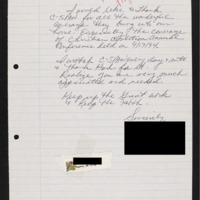 I would like to thank
C-Span for all the wonderful
coverage they bring into our
home. Especially the coverage
of Christian Coalition
Conference held on 9/17/94.
I watch C-Span every day & note
to thank God for it.
Realize you are very much
appreciated and needed.
Keep up the Great work
& Keep the Faith.
Sincerely